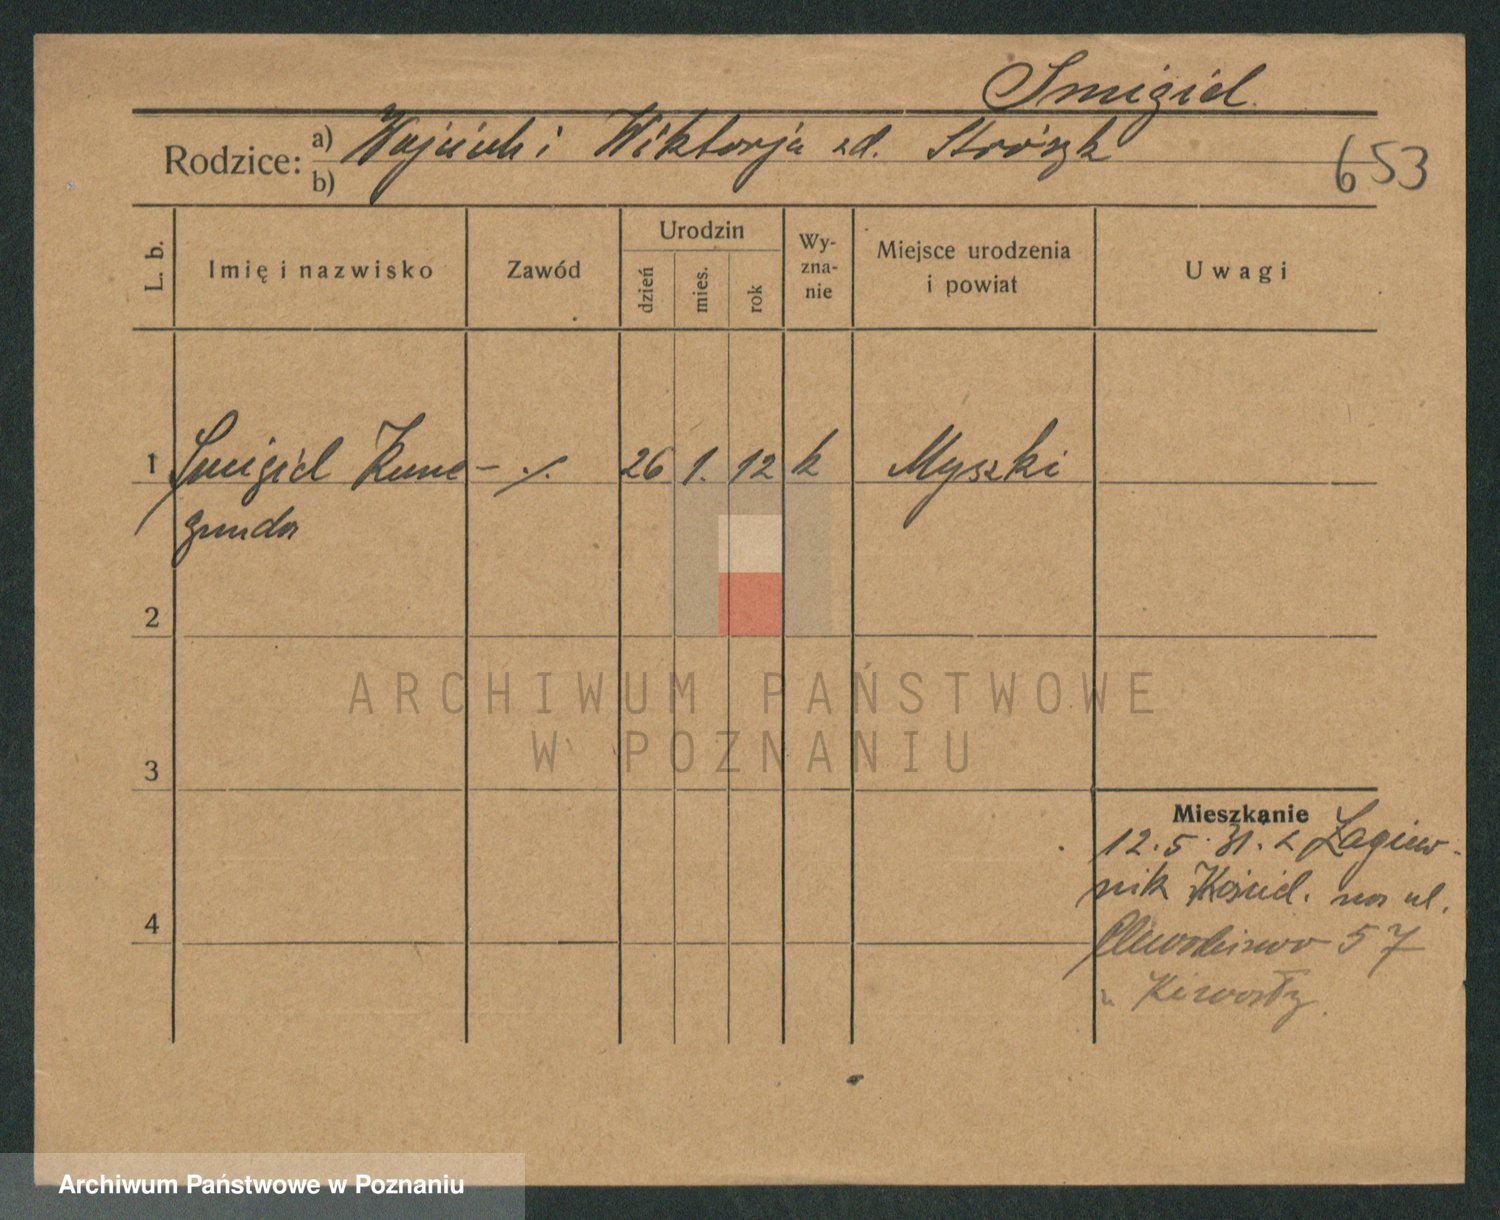 Smigiel
Rodzice: a) Wojciech i Wiktorja zd. Stróżyk
b)
653
L. b.
Imię i nazwisko
Zawód
Urodzin
dzień
mies.
rok
Wy-
zna-
nie
Miejsce urodzenia
i powiat
Uwagi
1 Smigiel Kune- ./. 26 1. 12 k Myszki
gunda
2
3
4
Mieszkanie
12.5.31. z Łagiew-
nik Kościel. na ul.
57
u
ARCHIWUM PAŃSTWOWE
W POZNANIU
Archiwum Państwowe w Poznaniu